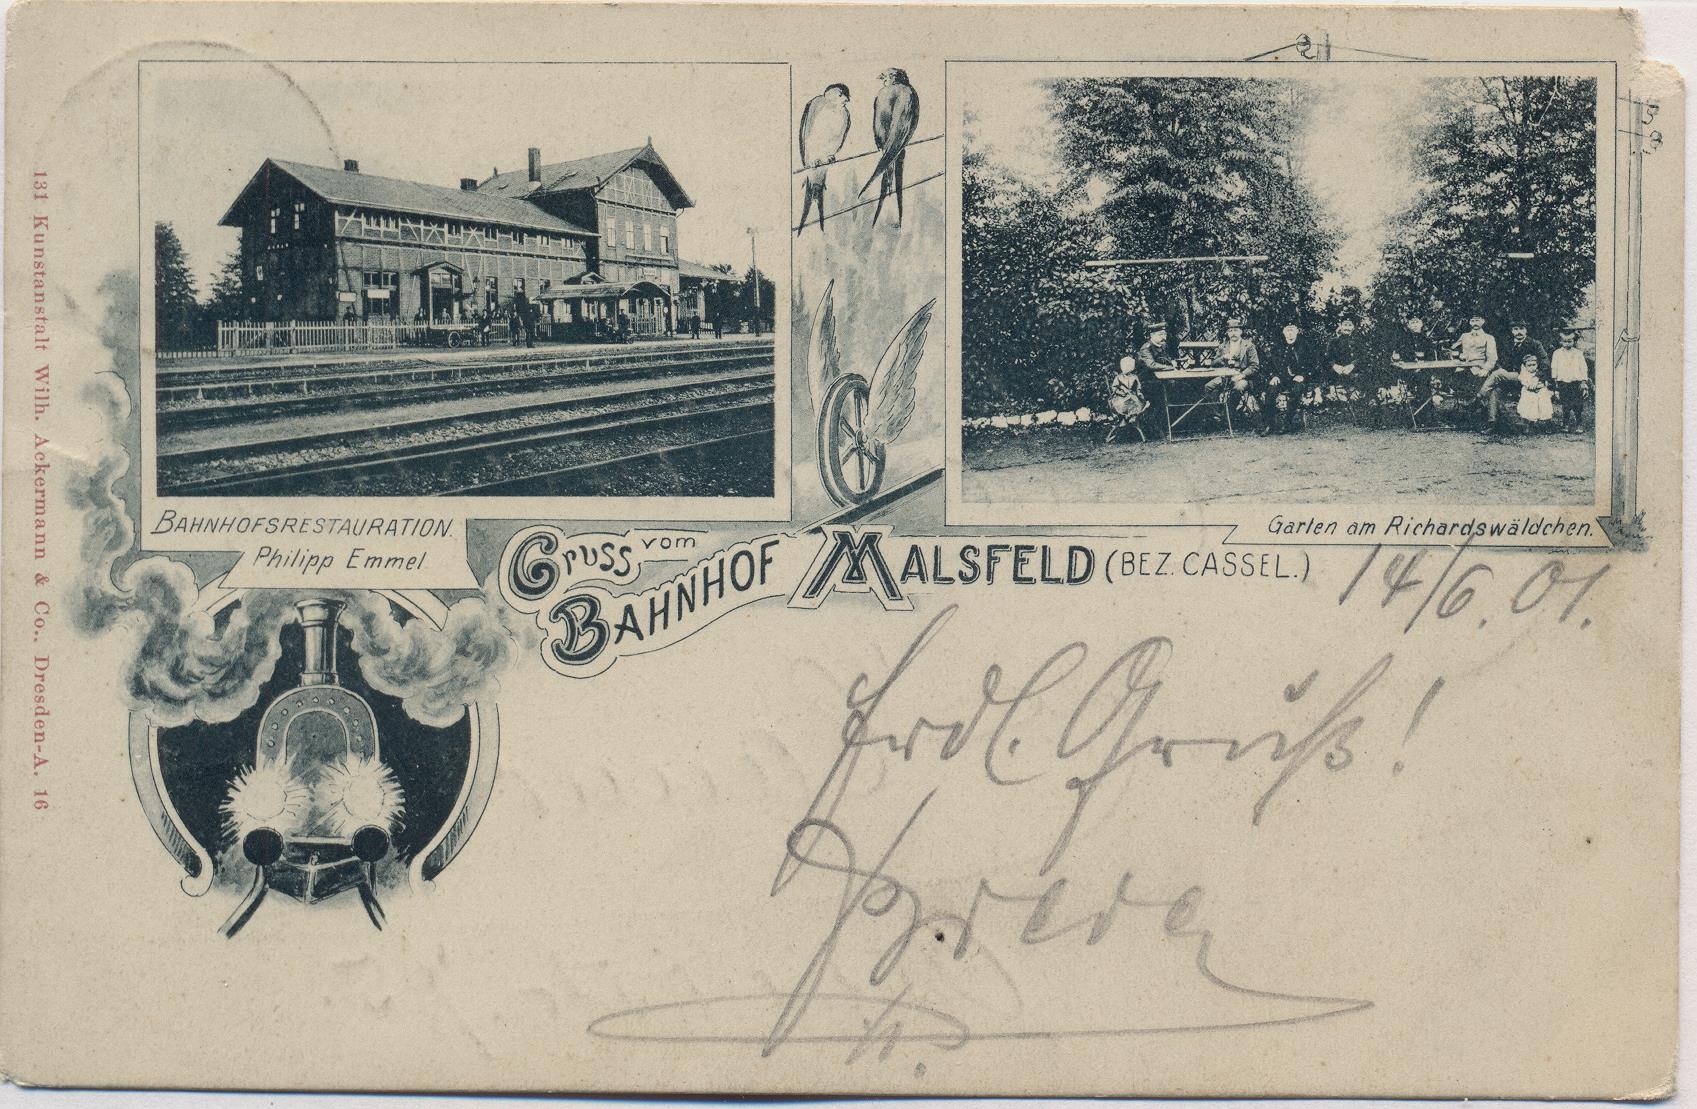 131 Kunstanstalt Wilh. Ackermann & Co., Dresden-A. 16
BAHNHOFSRESTAURATION.
Philipp Emmel
Garten am Richardswäldchen.
Gruss vom
BAHNHOF MALSFELD (BEZ. CASSEL.)
14/6.01.
Frdl. Gruß!